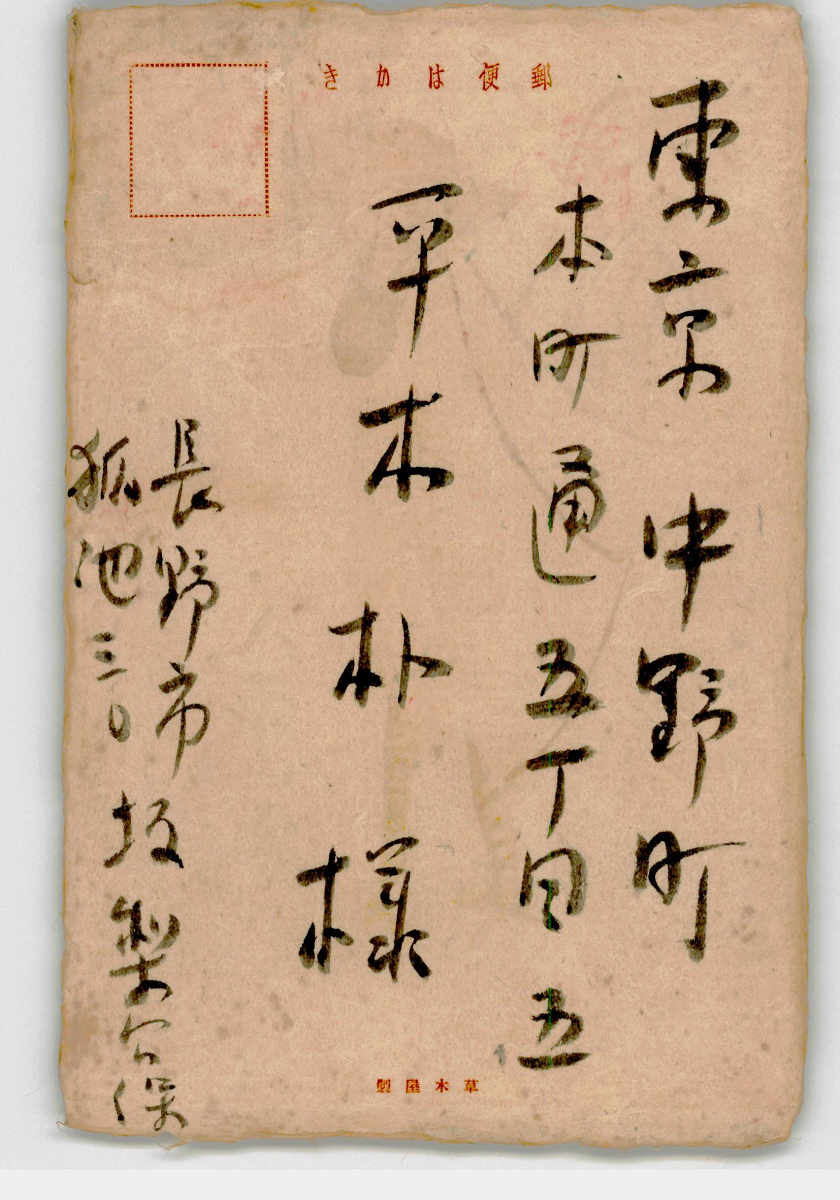 郵便はかき
東京 中野町
本町通五丁目五
平木朴
様
長野市
狐池三〇
坂
草木屋製